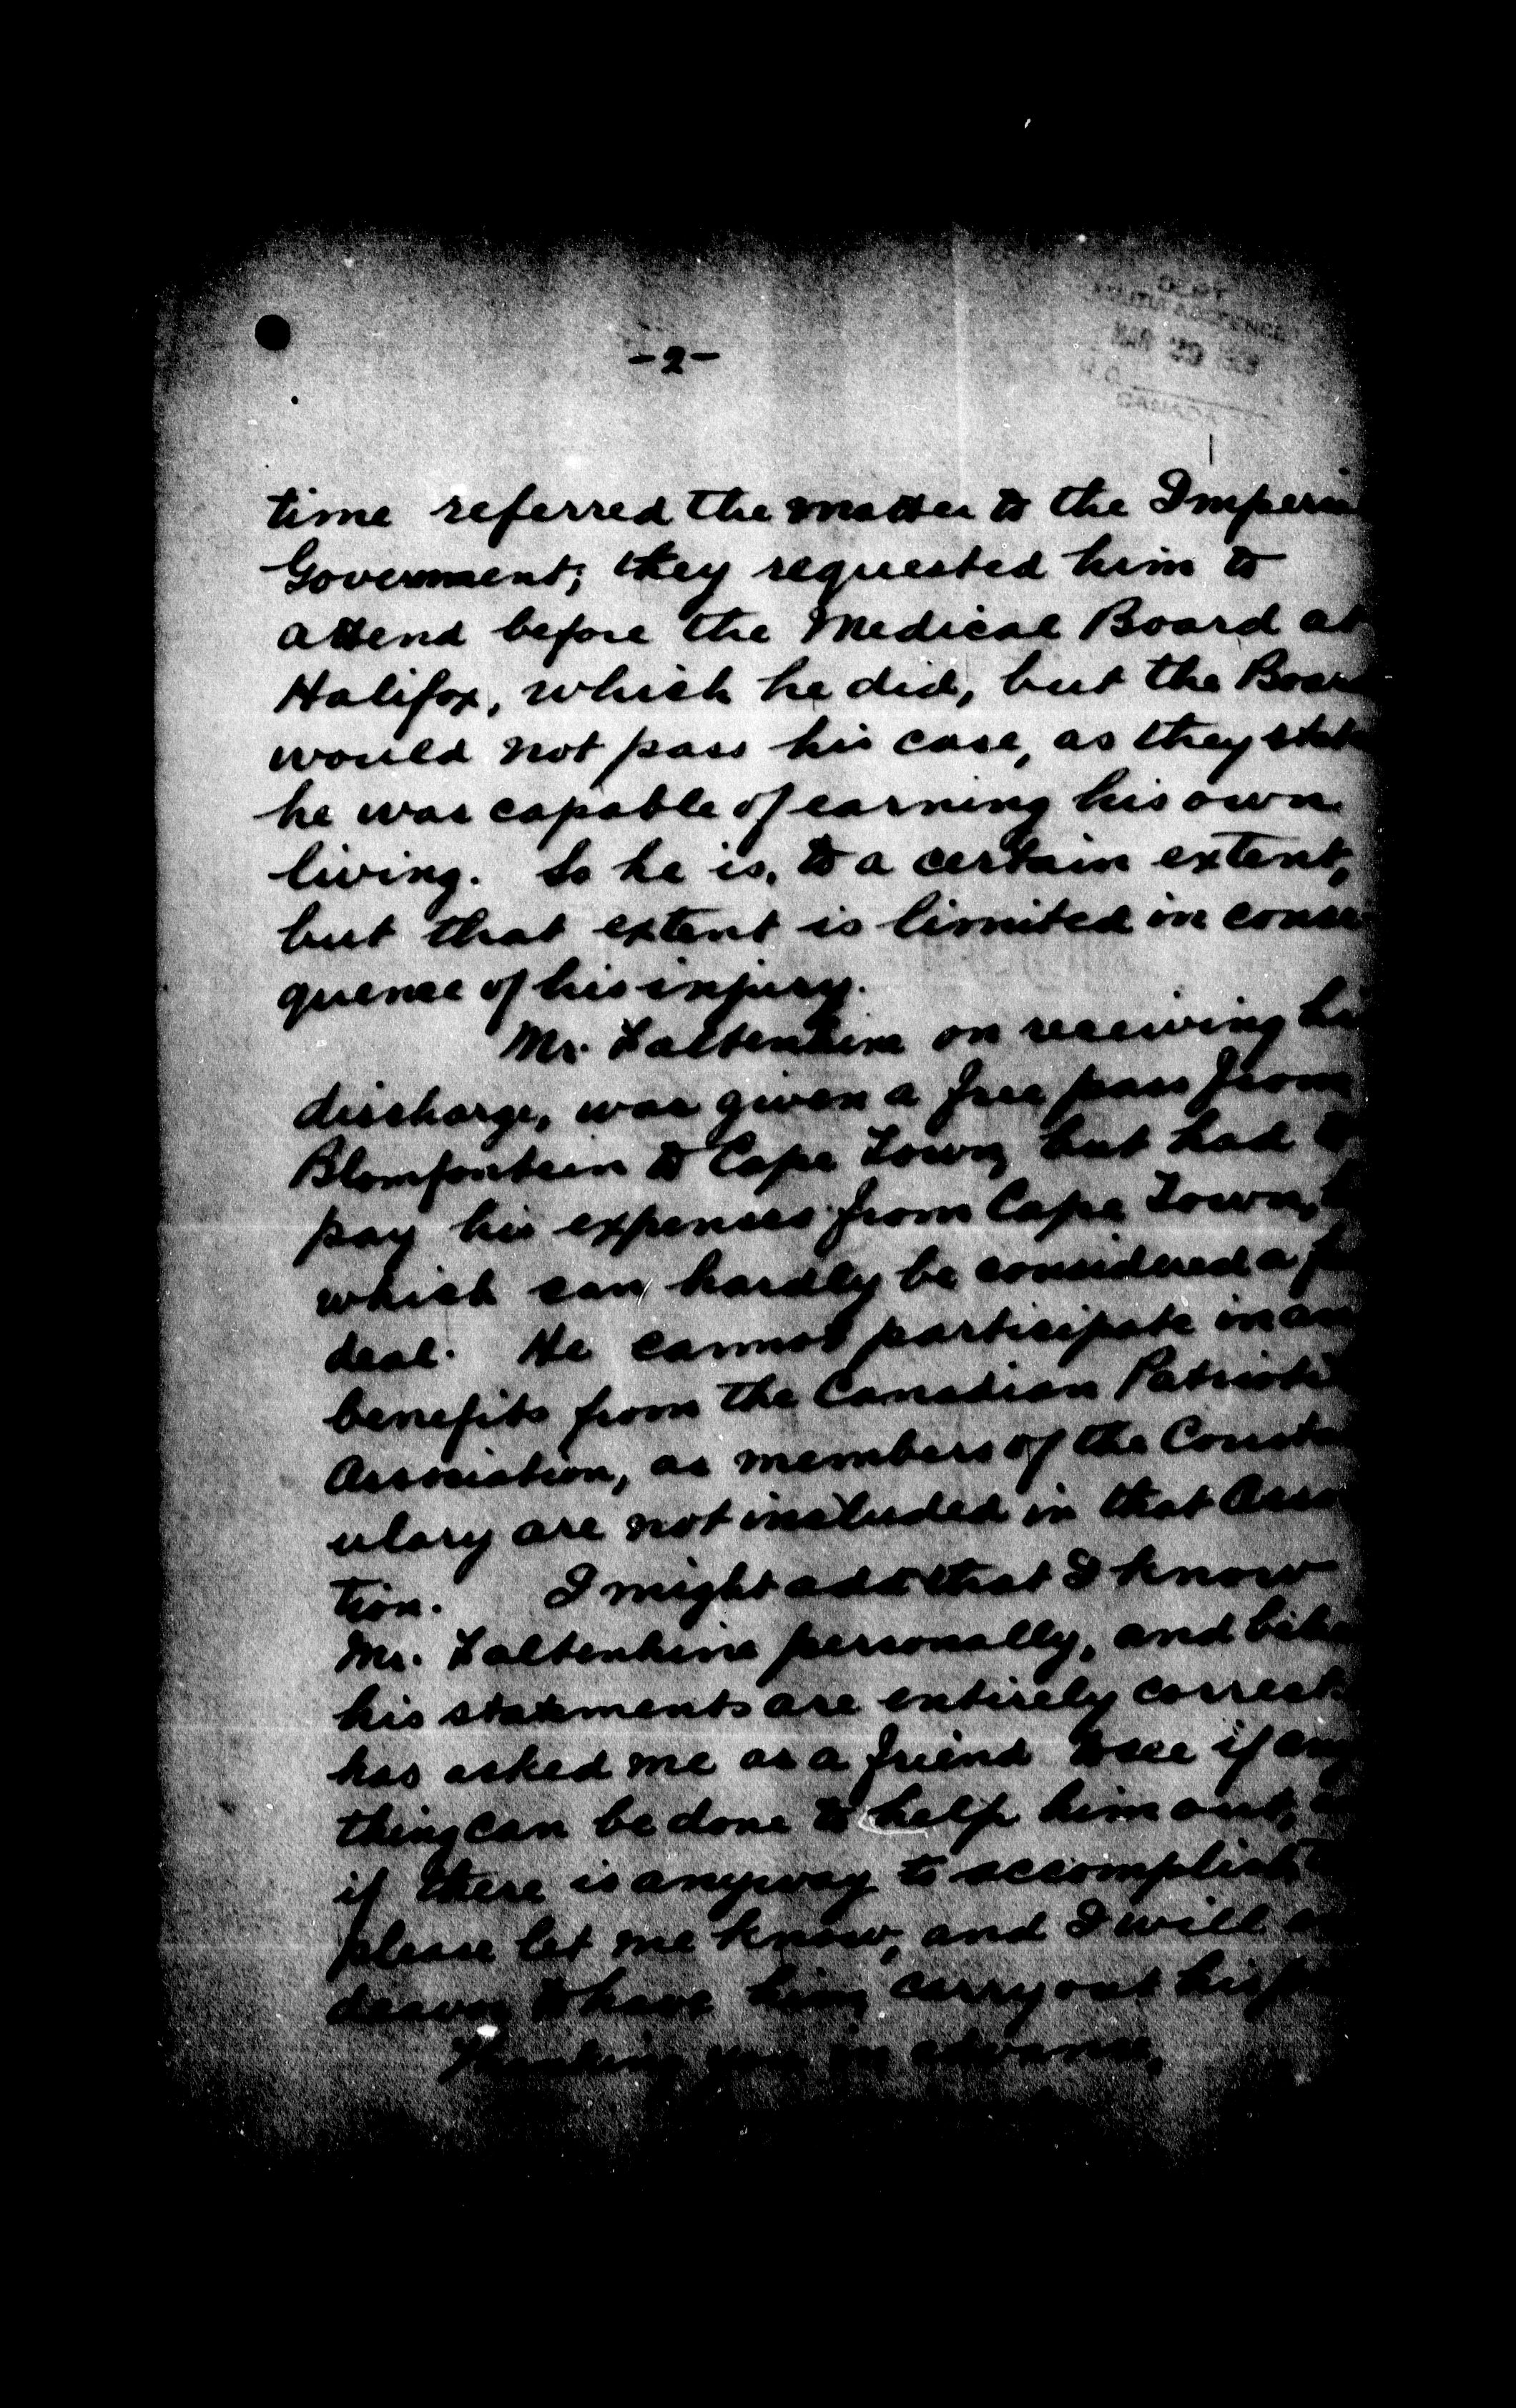 -2-
DEPT
MILITIA & DEFENCE
MAR 29
H.Q.
CANADA
time referred the matter to the Imperi
Government; they requested him to
attend before the Medical Board at
Halifax, which he did, but the Boar
would not pass his case, as they stat
he was capable of earning his own
living. So he is, to a certain extent,
but that extent is limited in conse
quence of his injury.
Mr. Faltenhine on receiving hi
discharge, was given a free pass from
Blomfontein to Cape Town, but had to
pay his expenses from Cape Town,
which can hardly be considered a
deal. He cannot participate in an
benefits from the Canadian Patrioti
Association, as members of the Const
ulary are not included in that Asso
tion. I might add that I know
Mr. Faltenhine personally, and
his statements are entirely correct.
has asked me as a friend to see if any
thing can be done to help him out,
if there is anyway to accomplish
please let me know, and I will
deavor to have him carry out his
Thanking you in advance,